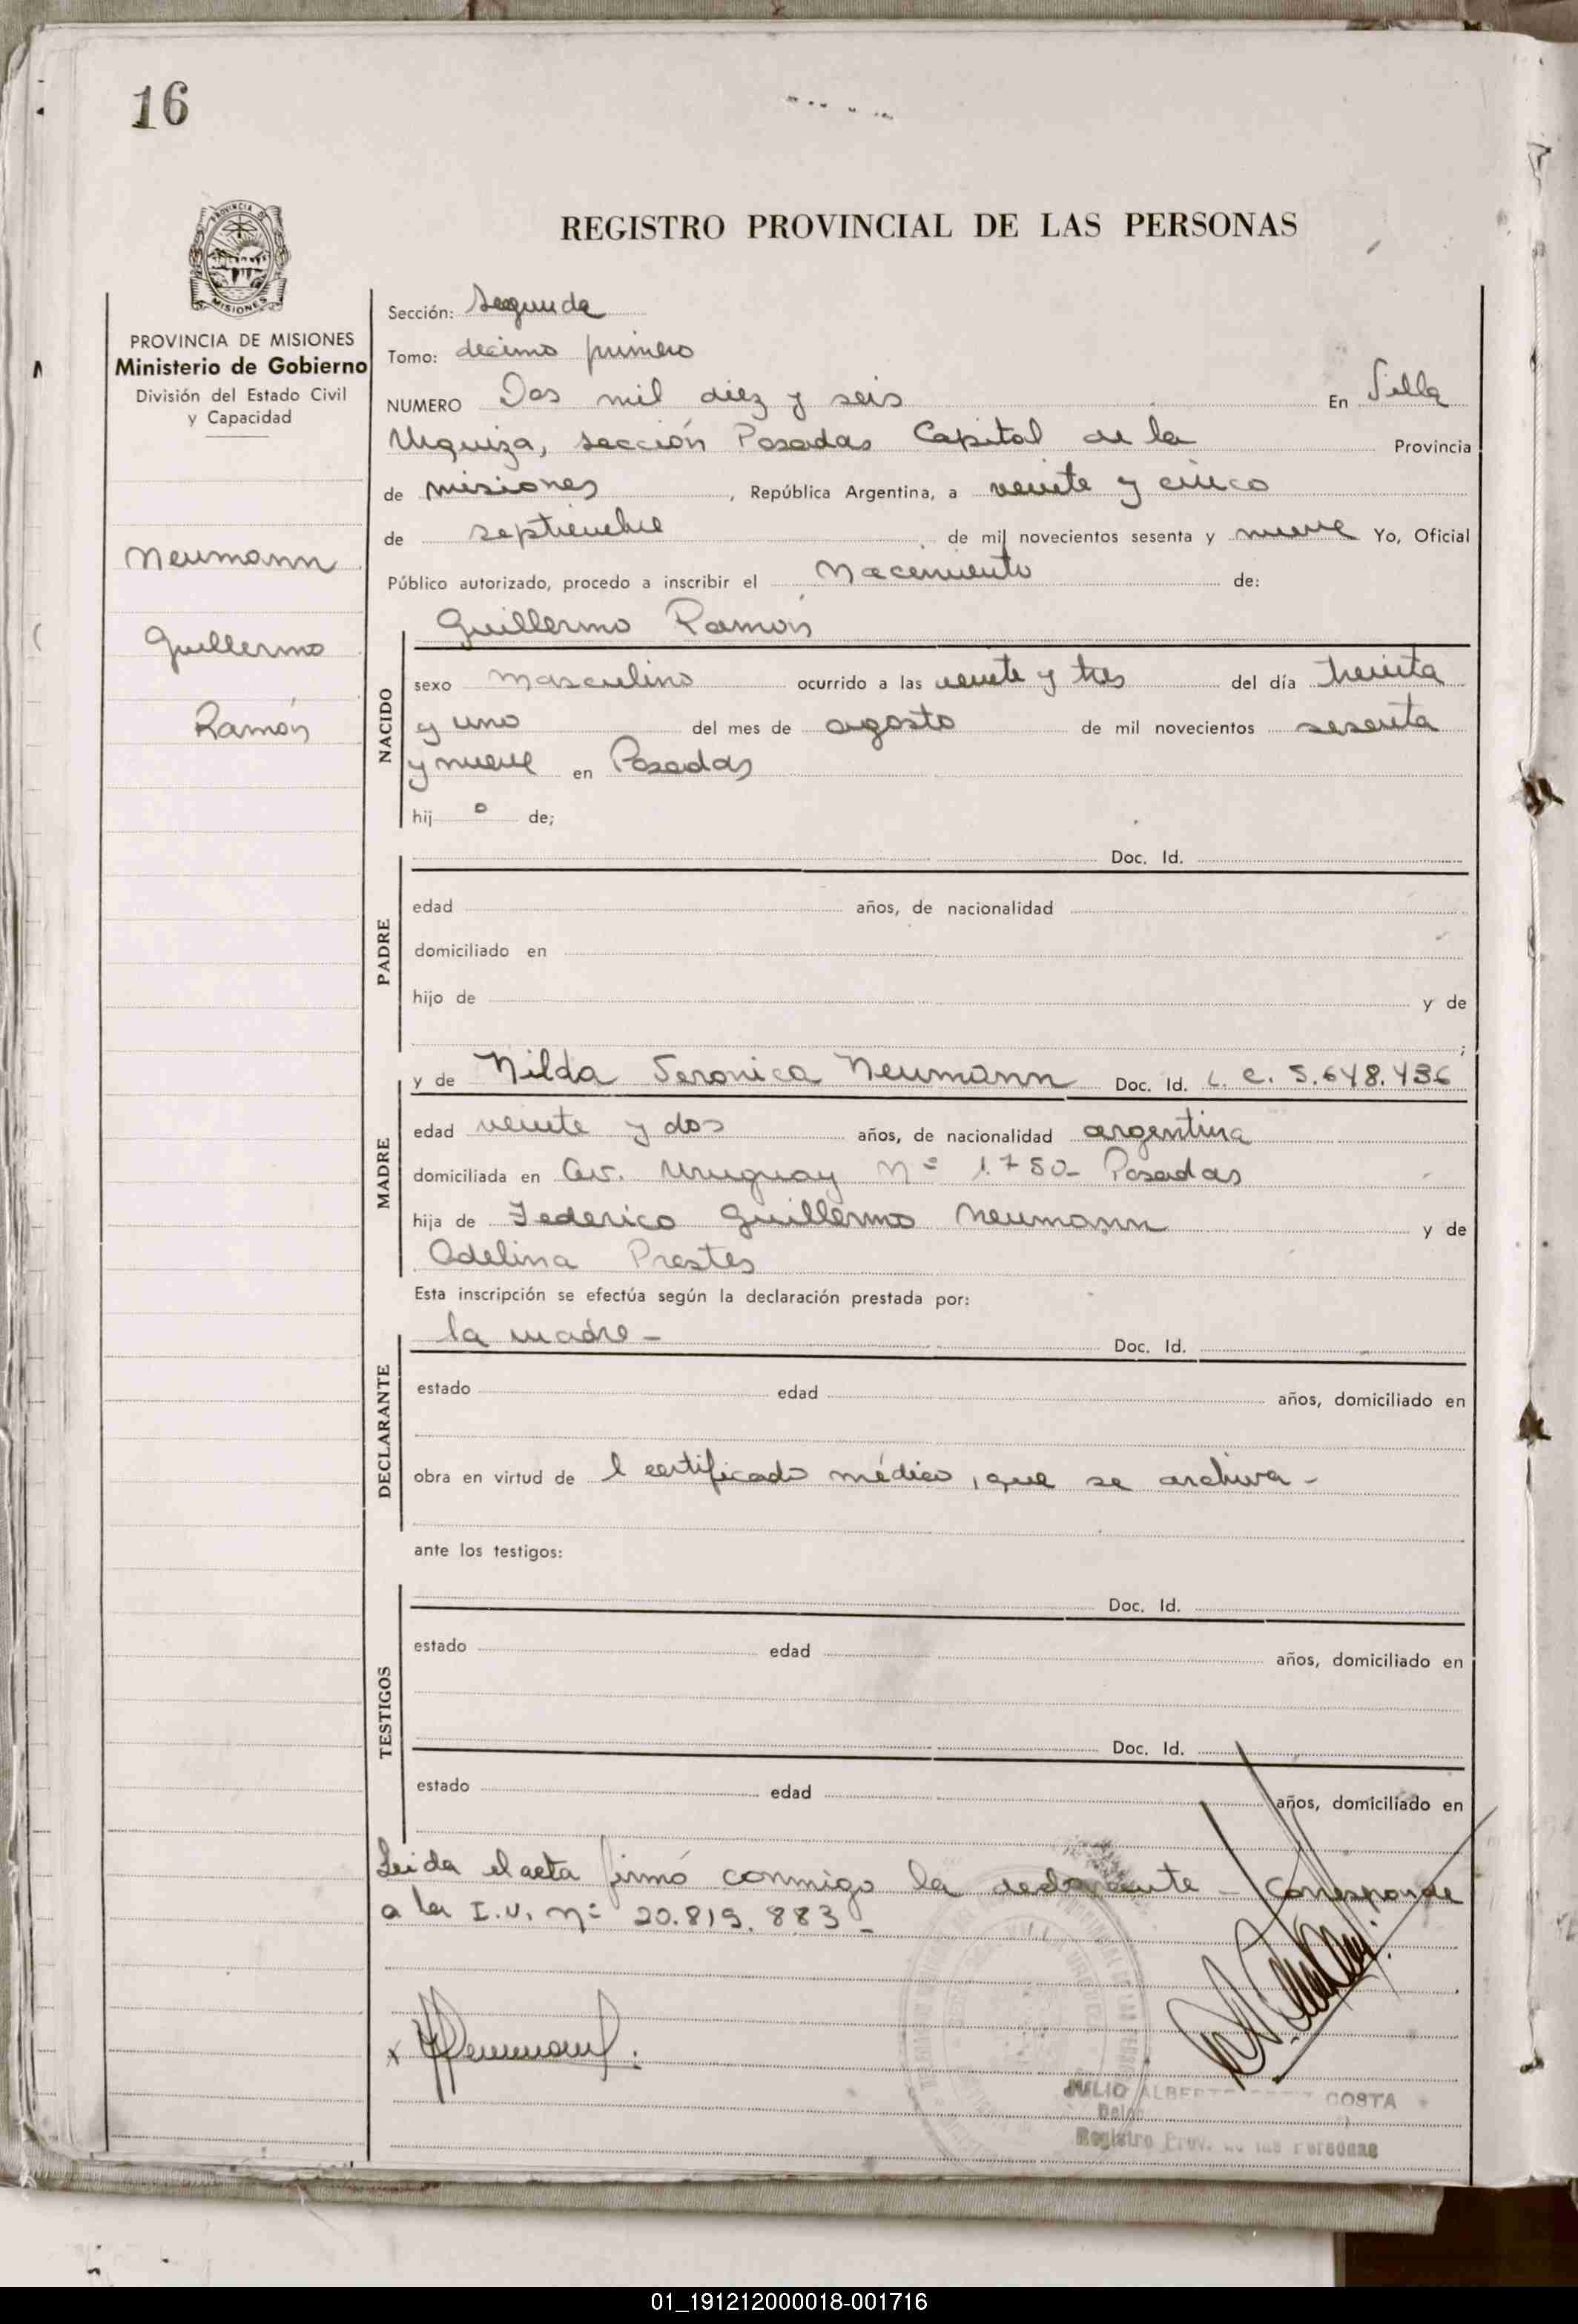 16
PROVINCIA DE MISIONES
MISIONES
PROVINCIA DE MISIONES
Ministerio de Gobierno
División del Estado Civil
y Capacidad
Neumann
Guillermo
Ramón
REGISTRO PROVINCIAL DE LAS PERSONAS
Sección: Segunda
Tomo: decimo primero
NUMERO Dos mil diez y seis En Villa
Urquiza, sección Posadas Capital de la Provincia
de misiones, República Argentina, a veinte y cinco
de septiembre de mil novecientos sesenta y nueve Yo, Oficial
Público autorizado, procedo a inscribir el Nacimiento de:
Guillermo Ramón
NACIDO
sexo masculino ocurrido a las veinte y tres del día treinta
y uno del mes de agosto de mil novecientos sesenta
y nueve en Posadas
hij o de;
Doc. Id.
PADRE
edad años, de nacionalidad
domiciliado en
hijo de y de
;
MADRE
y de Nilda Veronica Neumann Doc. Id. L. C. 5.648.436
edad veinte y dos años, de nacionalidad argentina
domiciliada en Av. Uruguay Nº 1.750- Posadas
hija de Federico Guillermo Neumann y de
Adelina Prestes
Esta inscripción se efectúa según la declaración prestada por:
DECLARANTE
la madre - Doc. Id.
estado edad años, domiciliado en
obra en virtud de l certificado médico, que se archiva -
ante los testigos:
TESTIGOS
Doc. Id.
estado edad años, domiciliado en
Doc. Id.
estado edad años, domiciliado en
Leida el acta firmó conmigo la declarante - Corresponde
a la I.U. nº 20.819.883 -
x Neumann
JULIO ALBERTO COSTA
Registro Prov. de las Personas
01_191212000018-001716